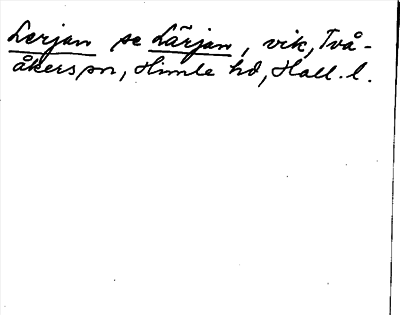 Lerjan se Lärjan, vik, Två-
åkers sn, Himle hd, Hall. l.